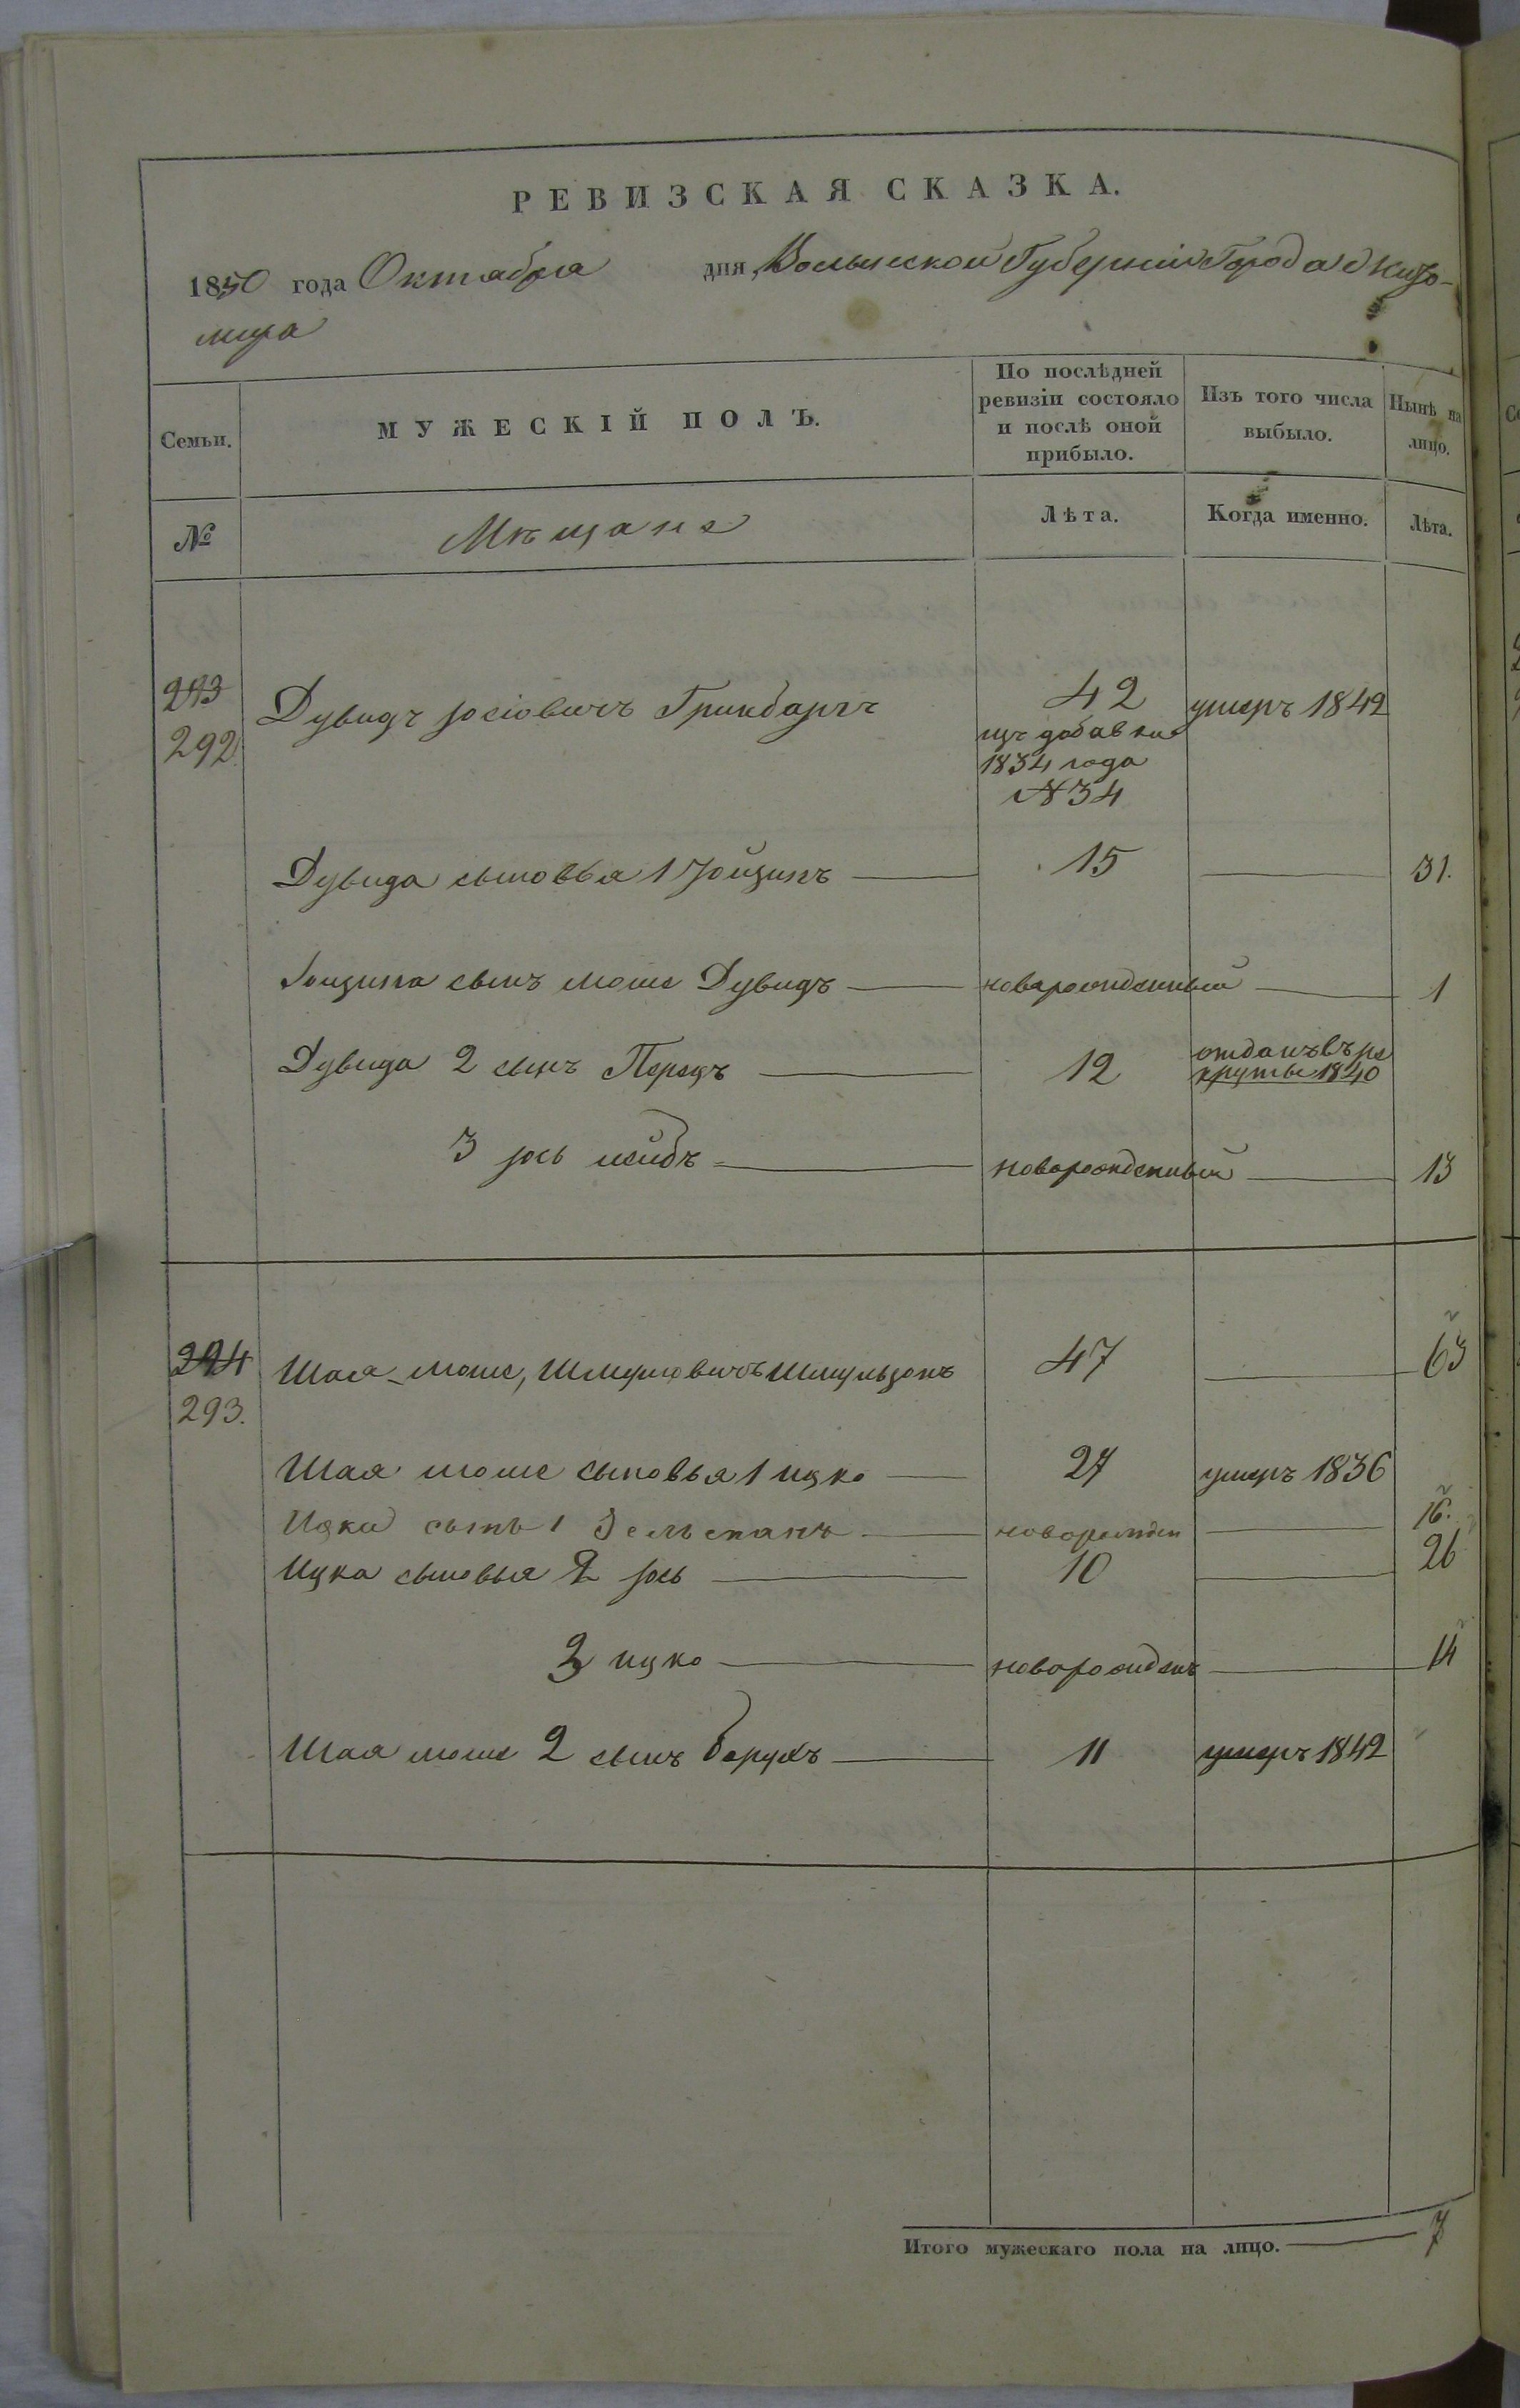 РЕВИЗСКАЯ СКАЗКА.
1850 года Октября дня, Волынской Губерніи Города Жито-
мира
Семьи.
МУЖЕСКІЙ ПОЛЪ.
По послѣдней
ревизіи состояло
и послѣ оной
прибыло.
Изъ того числа
выбыло.
Нынѣ на
лицо.
№
Мѣщане
Лѣта.
Когда именно.
Лѣта.
293
292
Дувидъ Іосіовичъ Гринбаргъ
42
умеръ 1842
изъ добавки
1834 года
№ 34
Дувида сыновья 1 Іойзипъ 15 31.
Іоизипа сынъ Моше Дувидъ новарожденный 1
Дувида 2 сынъ Перецъ 12 отданъ въ ре
круты 1840
3 Іось лейбъ новорожденный 13
294
293.
Шая-Моше, Шмулiовичъ Шмульзонъ 47 63
Шая моше сыновья 1 ицко 27 умеръ 1836
Ицки сынъ 1 Зельманъ новорожден 16.
Ицка сыновья 2 Іось 10 26
3 ицко новорожденъ 14
Шая моше 2 сынъ Барухъ 11 умеръ 1842
Итого мужескаго пола на лицо. 7